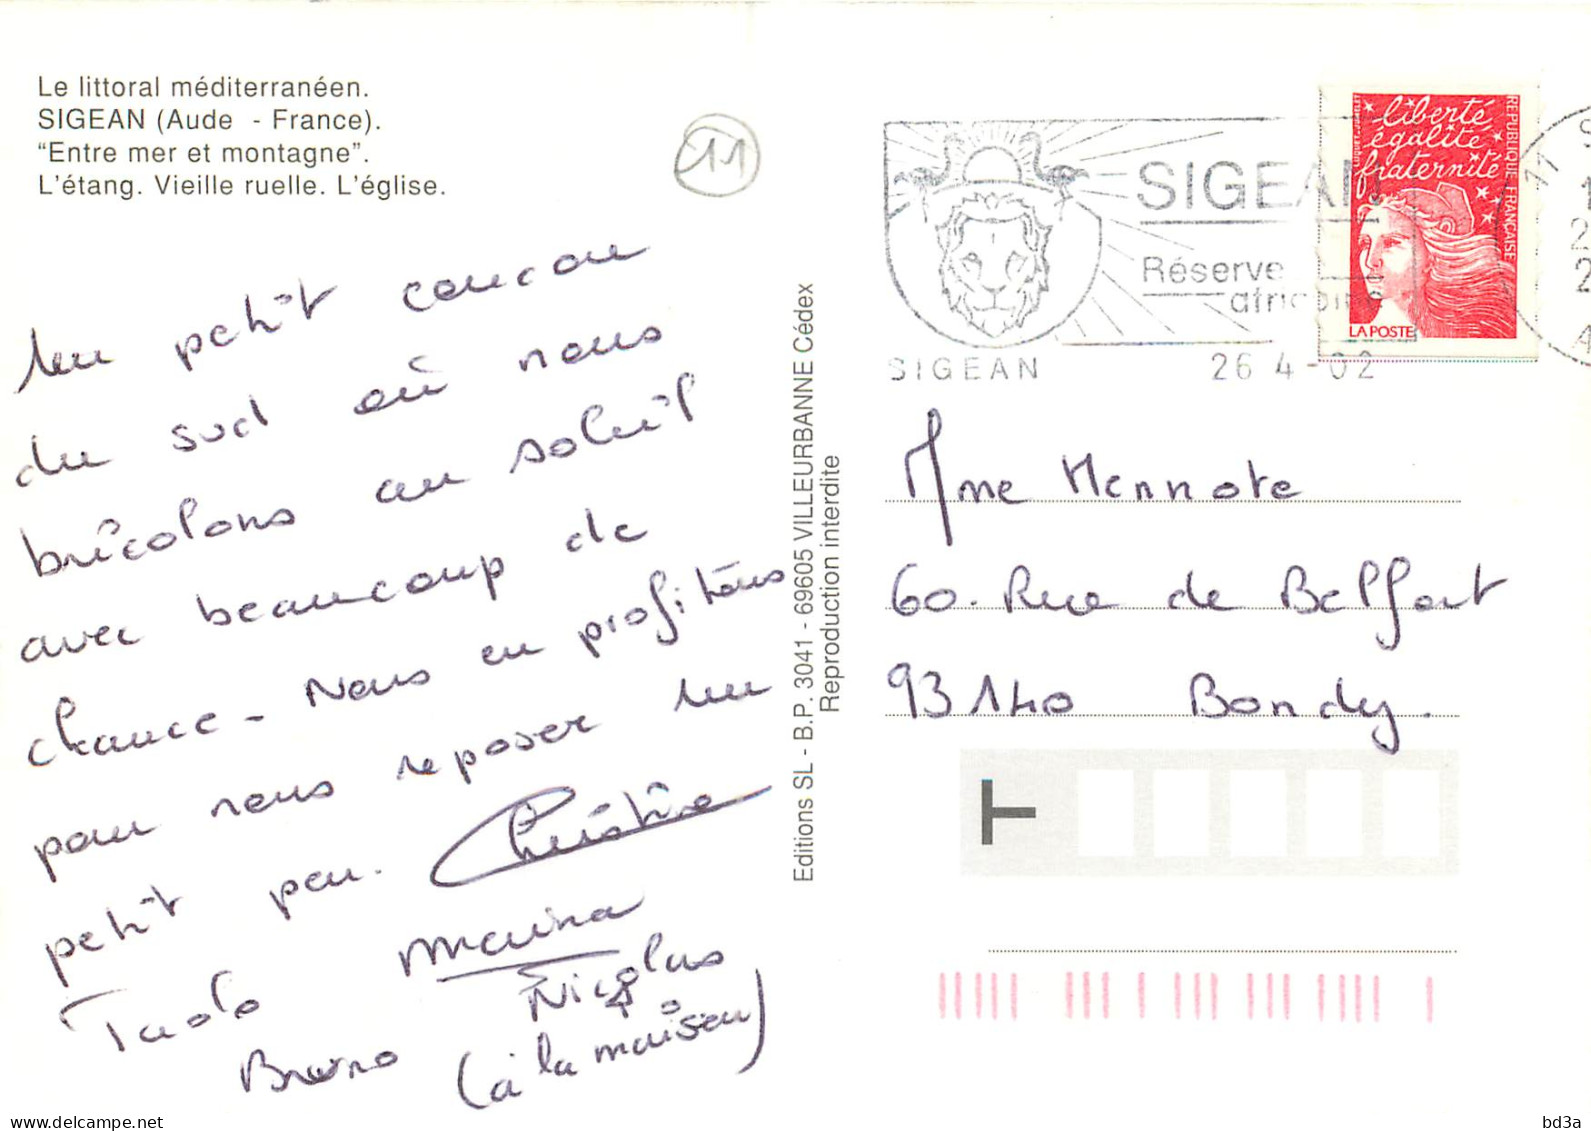 Le littoral méditerranéen.
SIGEAN (Aude - France).
"Entre mer et montagne".
L'étang. Vieille ruelle. L'église.
11
Un petit coucou
du sud où nous
bricolons au soleil
avec beaucoup de
chance - Nous en profitons
pour nous reposer un
petit peu. Christine
Marina
Nicolas
Bruno (à la maison)
Editions SL - B.P. 3041 - 69605 VILLEURBANNE Cédex
Reproduction interdite
SIGEAN
Réserve
africaine
SIGEAN 26 4-02
liberté
égalité
fraternité
REPUBLIQUE FRANÇAISE
LA POSTE
11
Mme Mennote
60. Rue de Belfort
93140 Bondy.
T
delcampe.net
bd3a